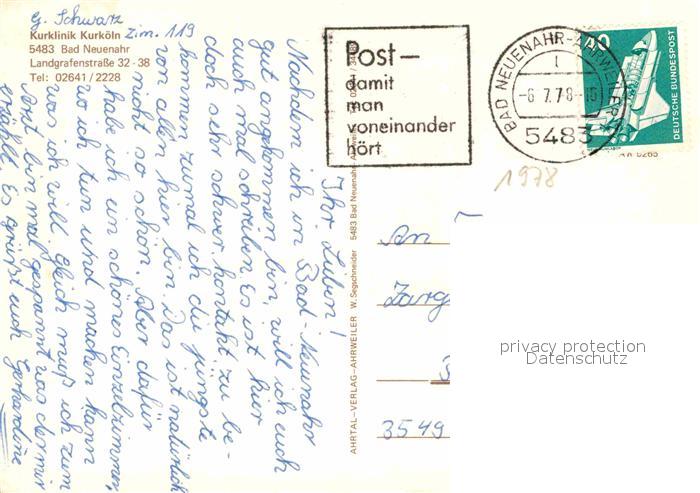 G. Schwarz
Zim. 119
Kurklinik Kurköln
5483 Bad Neuenahr
Landgrafenstraße 32 - 38
Tel: 02641 / 2228
Ihr Lieben!
Nachdem ich in Bad-Neunahr
gut angekommen bin, will ich euch
auch mal schreiben. Es ist hier
doch sehr schwer kontakt zu be-
kommen zumal ich die jüngste
von allen hier bin. Das ist natürlich
nicht so schön. Aber dafür
habe ich ein schönes Einzelzimmer,
wo ich tun und machen kann
was ich will. Gleich muß ich zum
Arzt bin mal gespannt was der mir
erzählt. Es grüßt euch Gerhardine
AHRTAL-VERLAG-AHRWEILER W. Segschneider 5483 Bad Neuenahr-Ahrweiler
Post-
damit
man
voneinander
hört
BAD NEUENAHR-AHRWEILER
1
-6.7.78-15
5483
DEUTSCHE BUNDESPOST
1978
An
Zarg
3549
privacy protection
Datenschutz